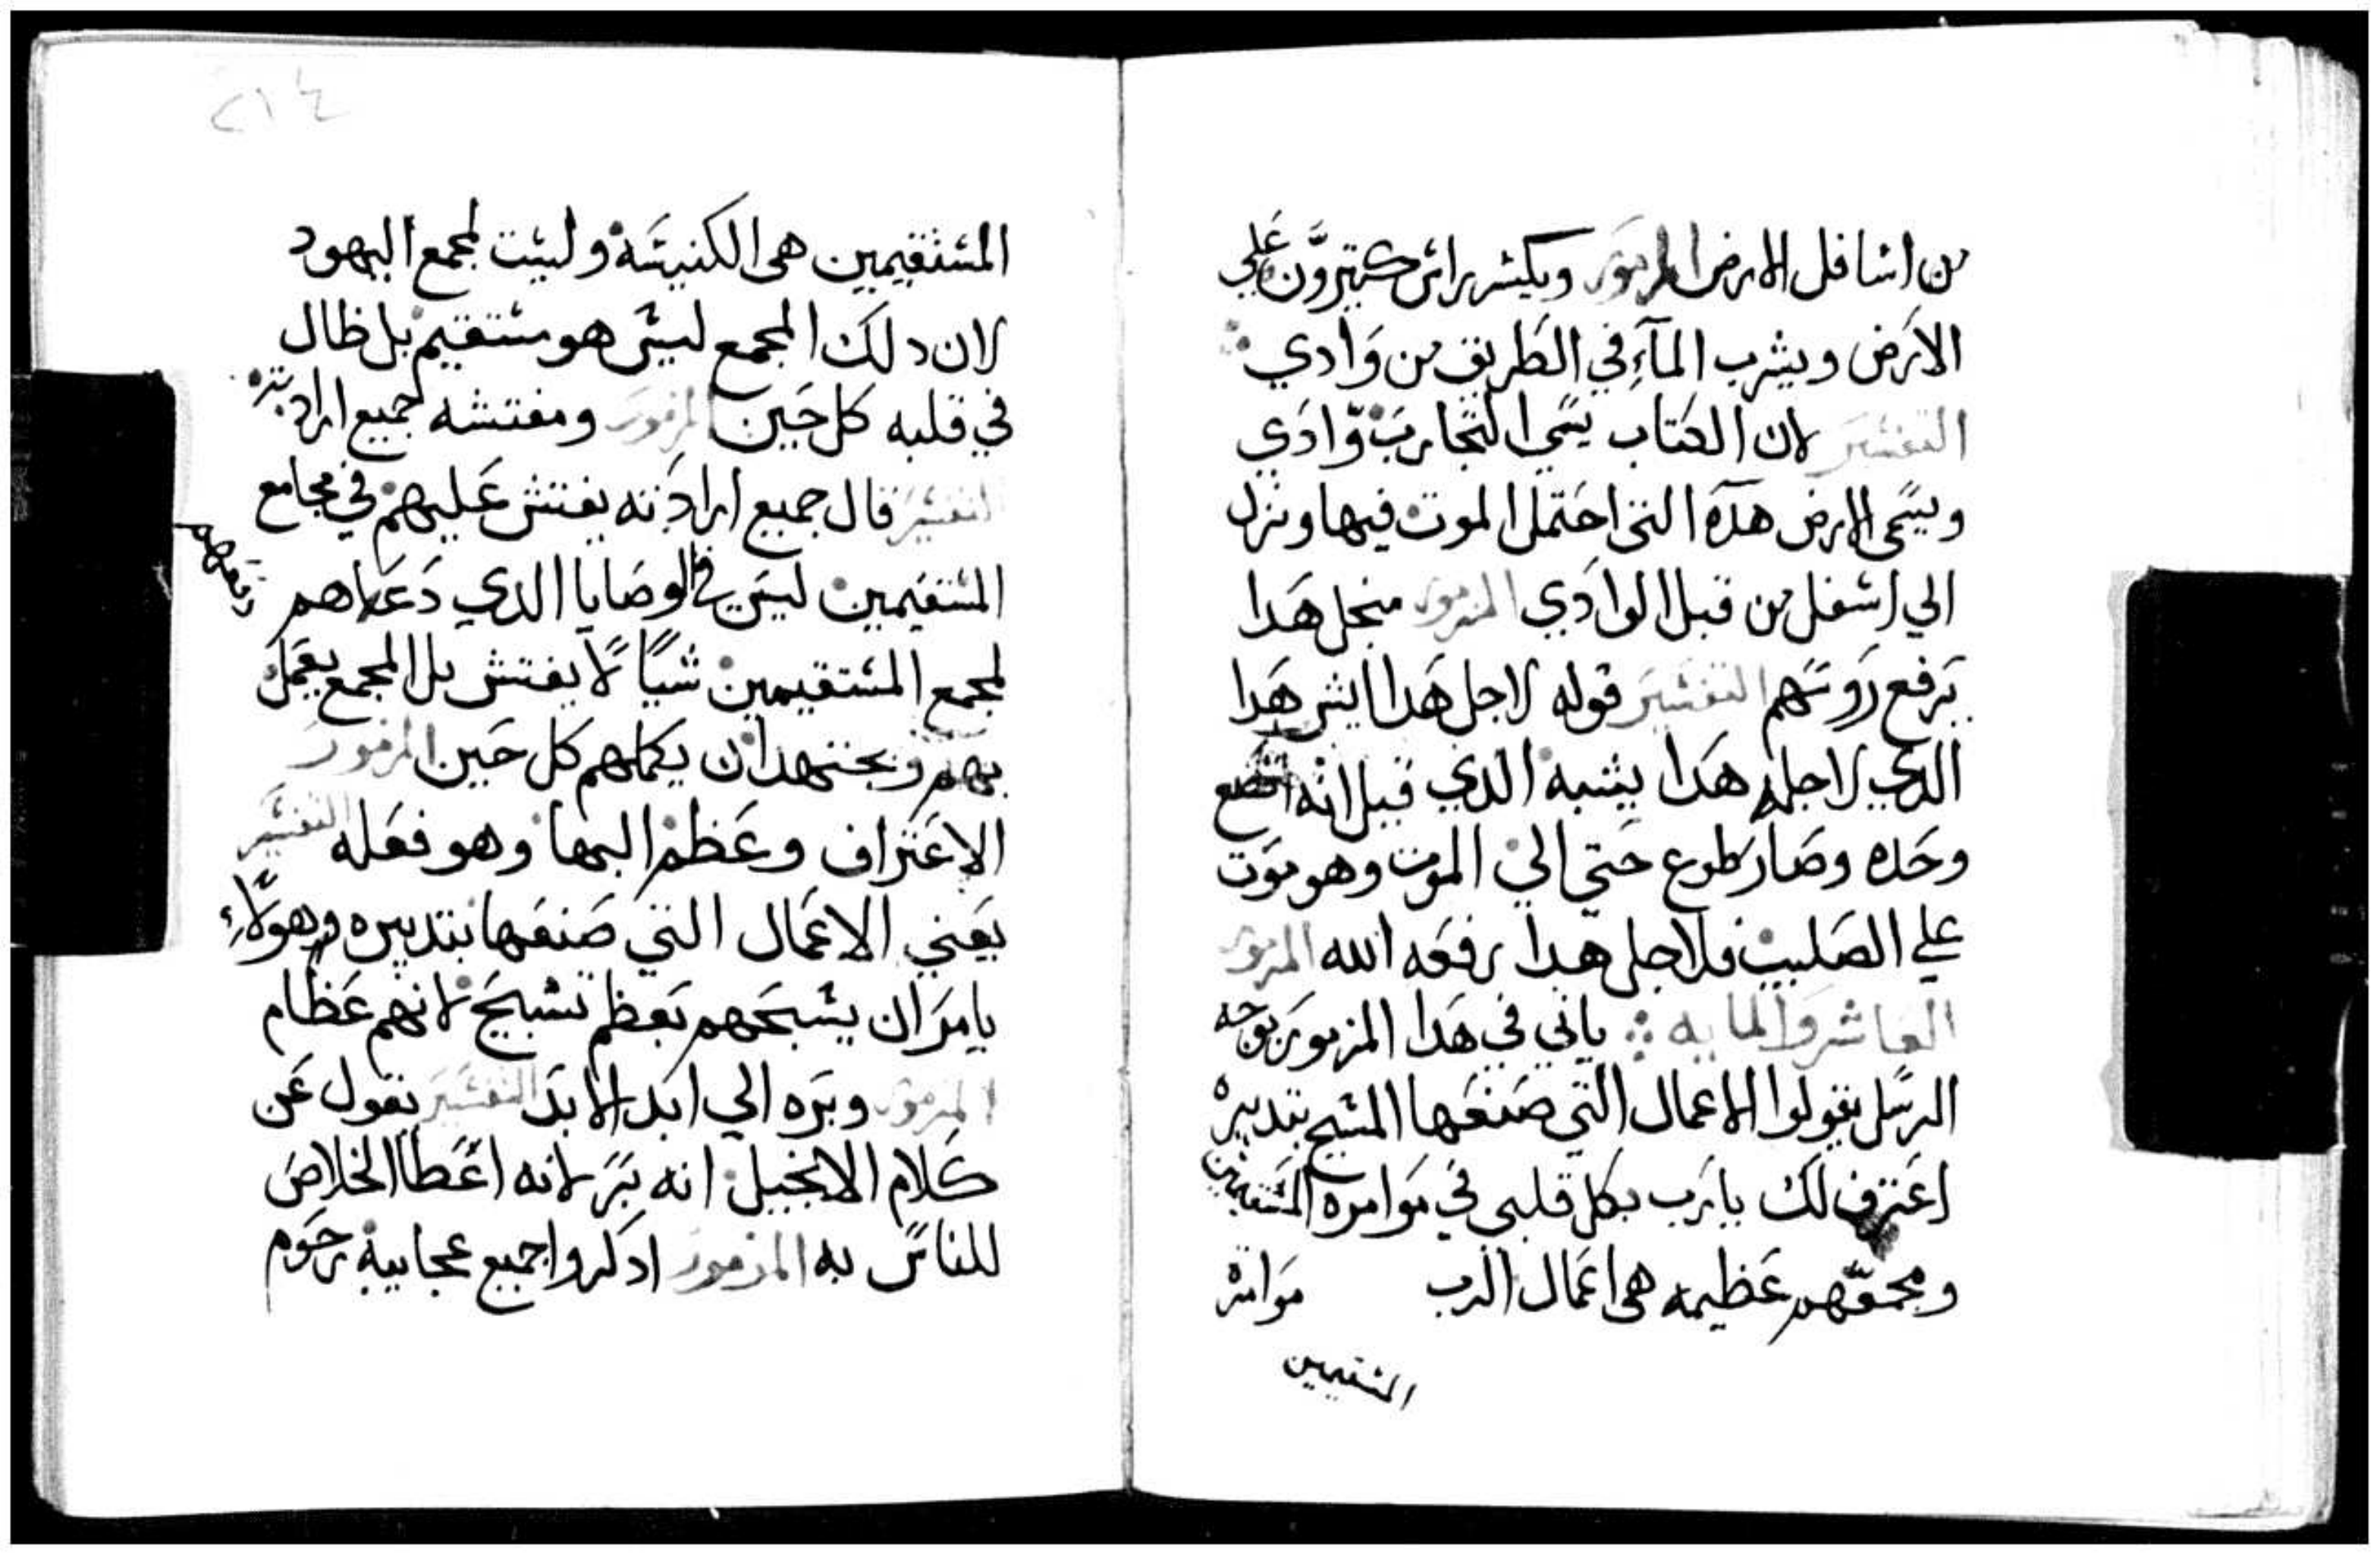 من اسافل الارض المزمور ويكسر راس كتيرون علي
الارض ويشرب المآء في الطريق من وادي
التفسير لان الكتاب يسمي التجارب وادي
ويسمي الارض هده التي احتمل الموت فيها ونزل
الي اسفل من قبل الوادي المزمور منجل هدا
يرفع روسهم التفسير قوله لاجل هدا ايش هدا
الدي لاجله هدا يشبه الدي قيل انه اتضع
وحده وصار طوع حتي الي الموت وهو موت
علي الصليب فلاجل هدا رفعه الله المزمور
العاشر والمايه ياتي في هدا المزمور بوجه
الرسل يقولوا الاعمال التي صنعها المسيح بتدبيره
اعترف لك يارب بكل قلبي في موامره المستقيمين
ومجمعهم عظيمه هي اعمال الرب موامره
المستقيمين
٢١٤
المستقيمين هي الكنيسه وليست لمجمع اليهود
لان دلك المجمع ليس هو مستقيم بل ظال
في قلبه كل حين المزمور ومفتشه لجميع ارادته
التفسير قال جميع ارادته يفتش عليهم في مجامع
المستقيمين ليس في الوصايا الدي دعاهم
لمجمع المستقيمين شياً لا يفتش بل المجمع يعمل
بهم ويجتهد ان يكملهم كل حين المزمور
الاعتراف وعظم البها وهو فعله التفسير
يعني الاعمال التي صنعها بتدبيره وهولاء
يامر ان يسبحهم بعظم تسبيح لانهم عظام
المزمور وبره الي ابد الابد التفسير يقول عن
كلام الانجيل انه بر لانه اعطا الخلاص
للناس به المزمور ادكروا جميع عجايبه رحوم